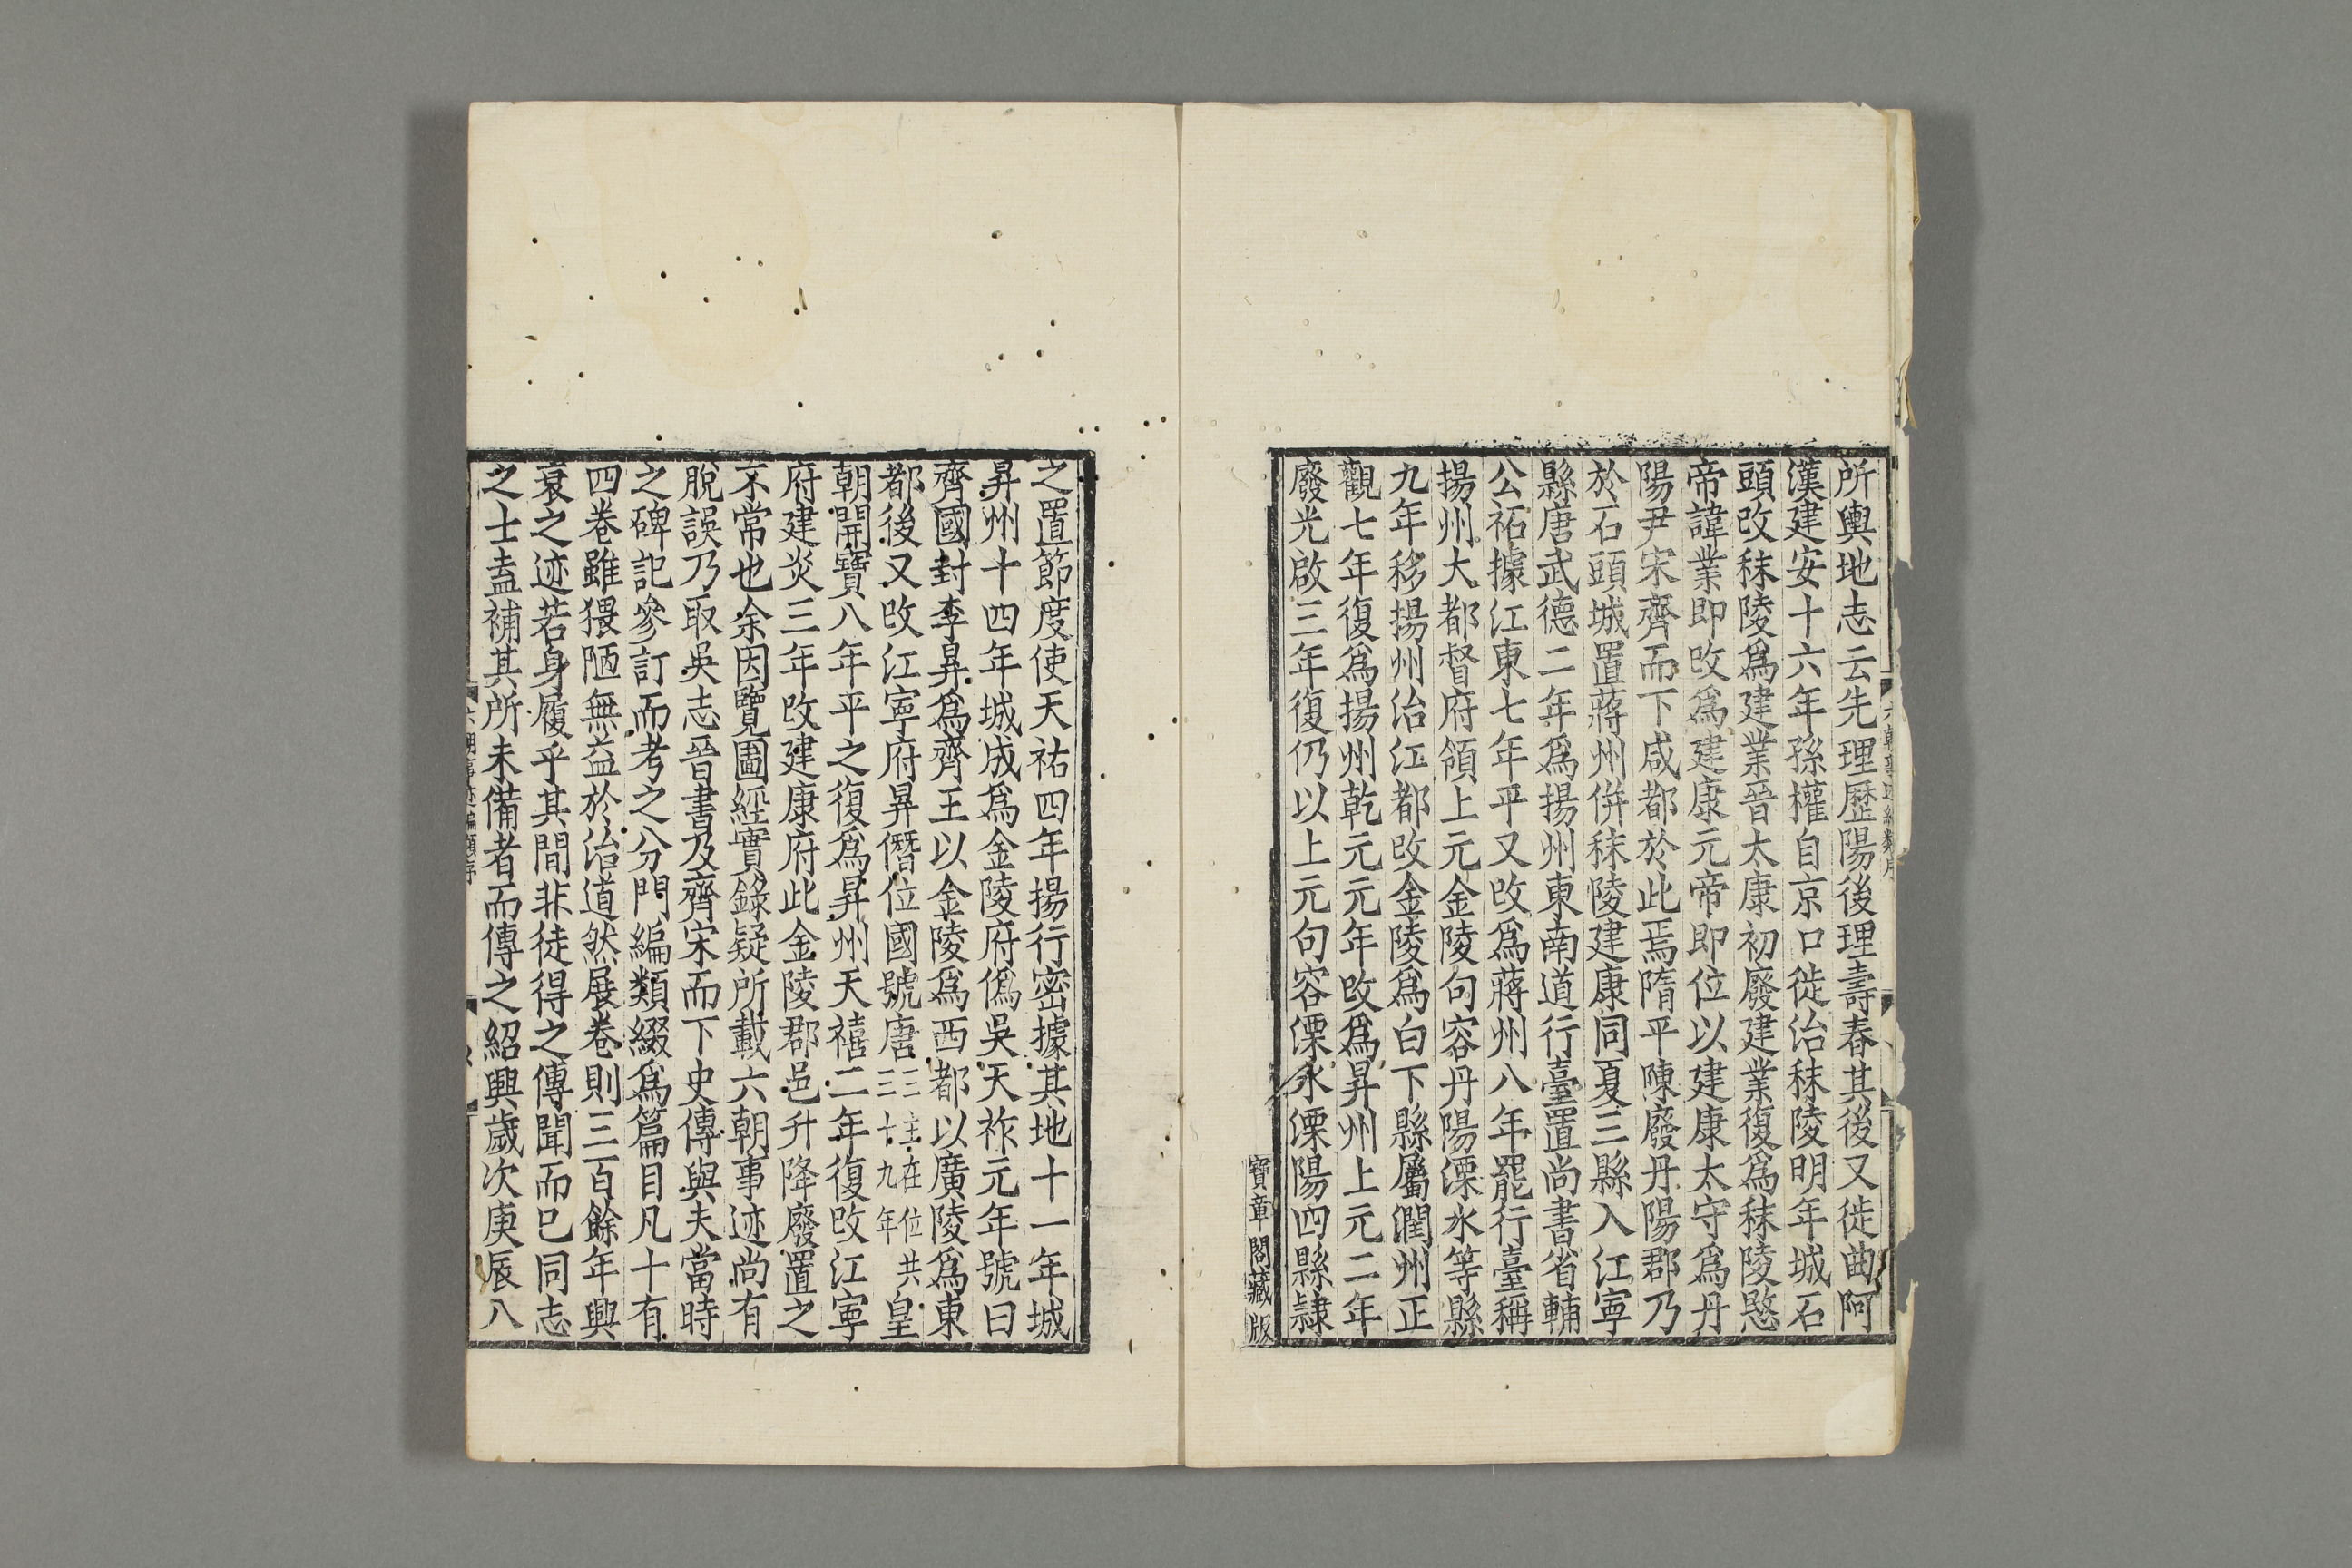 所輿地志云先理歷陽後理壽春其後又徙曲阿
漢建安十六年孫權自京口徙治秣陵明年城石
頭改秣陵爲建業晉太康初廢建業復爲秣陵愍
帝諱業即改爲建康元帝即位以建康太守爲丹
陽尹宋齊而下咸都於此焉隋平陳廢丹陽郡乃
於石頭城置蔣州併秣陵建康同夏三縣入江寧
縣唐武德二年爲揚州東南道行臺置尚書省輔
公祏據江東七年平又改爲蔣州八年罷行臺稱
揚州大都督府領上元金陵句容丹陽溧水等縣
九年移揚州治江都改金陵爲白下縣屬潤州正
觀七年復爲揚州乾元元年改爲昇州上元二年
廢光啟三年復仍以上元句容溧水溧陽四縣隷
寶章閣藏版
之置節度使天祐四年揚行密據其地十一年城
昇州十四年城成爲金陵府僞吳天祚元年號曰
齊國封李昪爲齊王以金陵爲西都以廣陵爲東
都後又改江寧府昪僭位國號唐三主在位共三十九年皇
朝開寶八年平之復爲昇州天禧二年復改江寧
府建炎三年改建康府此金陵郡邑升降廢置之
不常也余因覽圖經實錄疑所載六朝事迹尚有
脫誤乃取吳志晉書及齊宋而下史傳與夫當時
之碑記參訂而考之分門編類綴爲篇目凡十有
四卷雖猥陋無益於治道然展卷則三百餘年興
衰之迹若身履乎其間非徒得之傳聞而已同志
之士盍補其所未備者而傳之紹興歲次庚辰八